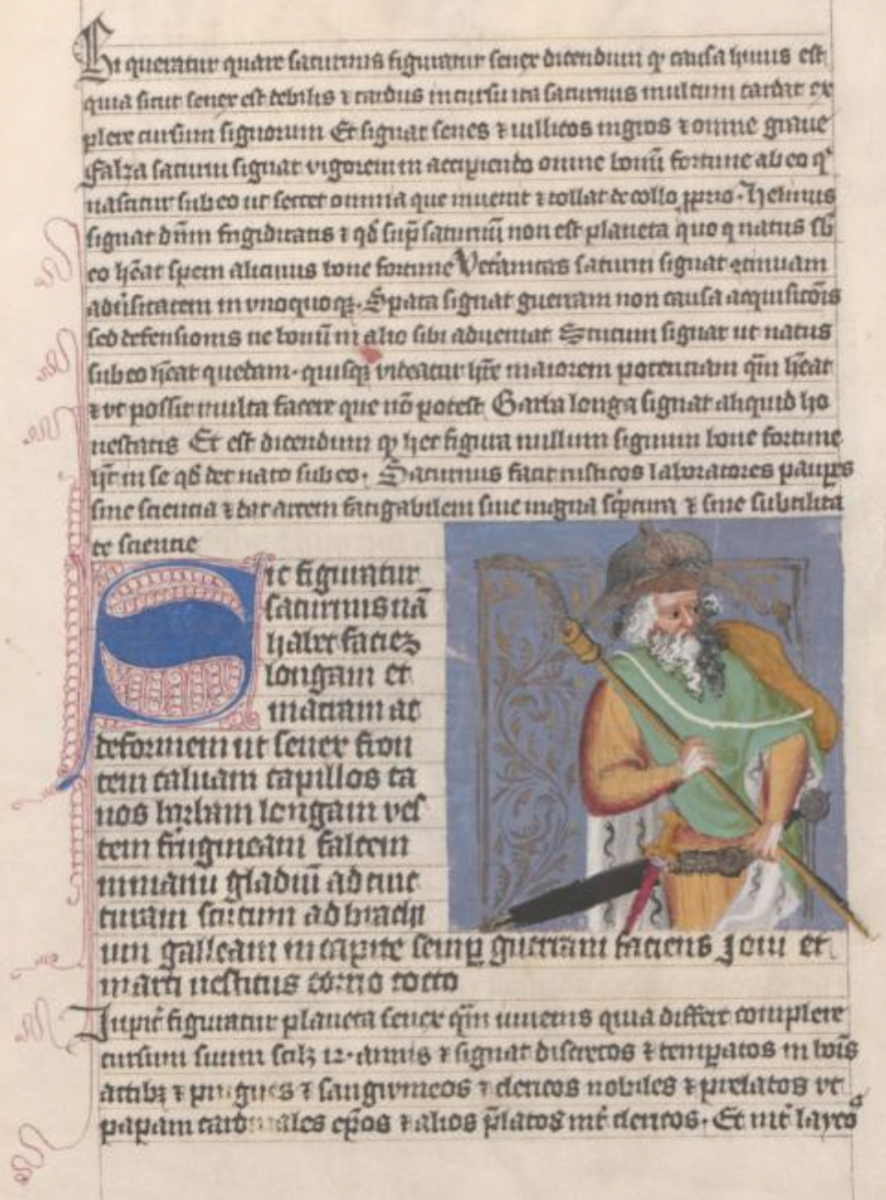 Si queratur quare saturnus figuratur senex dicendum qꝫ causa huius est
quia sicut senex est debilis ⁊ tardus in cursu ita saturnus multum tardat ex
plere cursum signorum Et signat senes ⁊ uillicos nigros ⁊ omne graue
Falx a saturni signat vigorem in accipiendo omne bonū fortune ab eo qͥ
nascitur sub eo ut secet omnia que inuenit ⁊ tollat de collo ꝓprio
signat dn̄m frigiditatis ⁊ qd̄ sup̄ saturnū non est planeta quo natus sb̄
eo hēat spem alicuius bone fortune signat ꝯtinuam
adūsitatem in vnoquoqꝫ. Spata signat guerram non causa acquisicōis
sed defensionis ne bonū in alio sibi adueniat Scutum signat ut natus
sub eo hēat quedam quisqꝫ videatur hr̄e maiorem potentiam qm̄ hēat
⁊ vt possit multa facere que nō potest Barba longa signat aliquid ho
nestatis Et est dicendum qꝫ hec figura nullum signum bone fortune
hꝫ in se qd̄ det nato sub eo. Saturnus facit rusticos laboratores paupes
sine sciencia ⁊ dat artem fatigabilem sine magna sc̄ptura ⁊ sine subtilita
te sciencie
Sic figuratur
saturnus nā
habet faciez
longam et
macram ac
deformem ut senex fron
tem caluam capillos ca
nos barbam longam ves
tem frūgineam falcem
in manu gladiū ad cinc
turam scutum ad brachi
um galeam in capite semꝑ guerram faciens Joui et
marti uestitus corio cocto
Jupit̄ figuratur planeta senex qm̄ iuuenis quia differt complere
cursum suum scilꝫ 12. annis ⁊ signat discretos ⁊ temperatos in bōis
artibꝫ ⁊ pingues ⁊ sanguineos ⁊ clericos nobiles ⁊ prelatos vt
papam cardinales ep̄os ⁊ alios p̄latos int̄ clericos. Et int̄ laycos